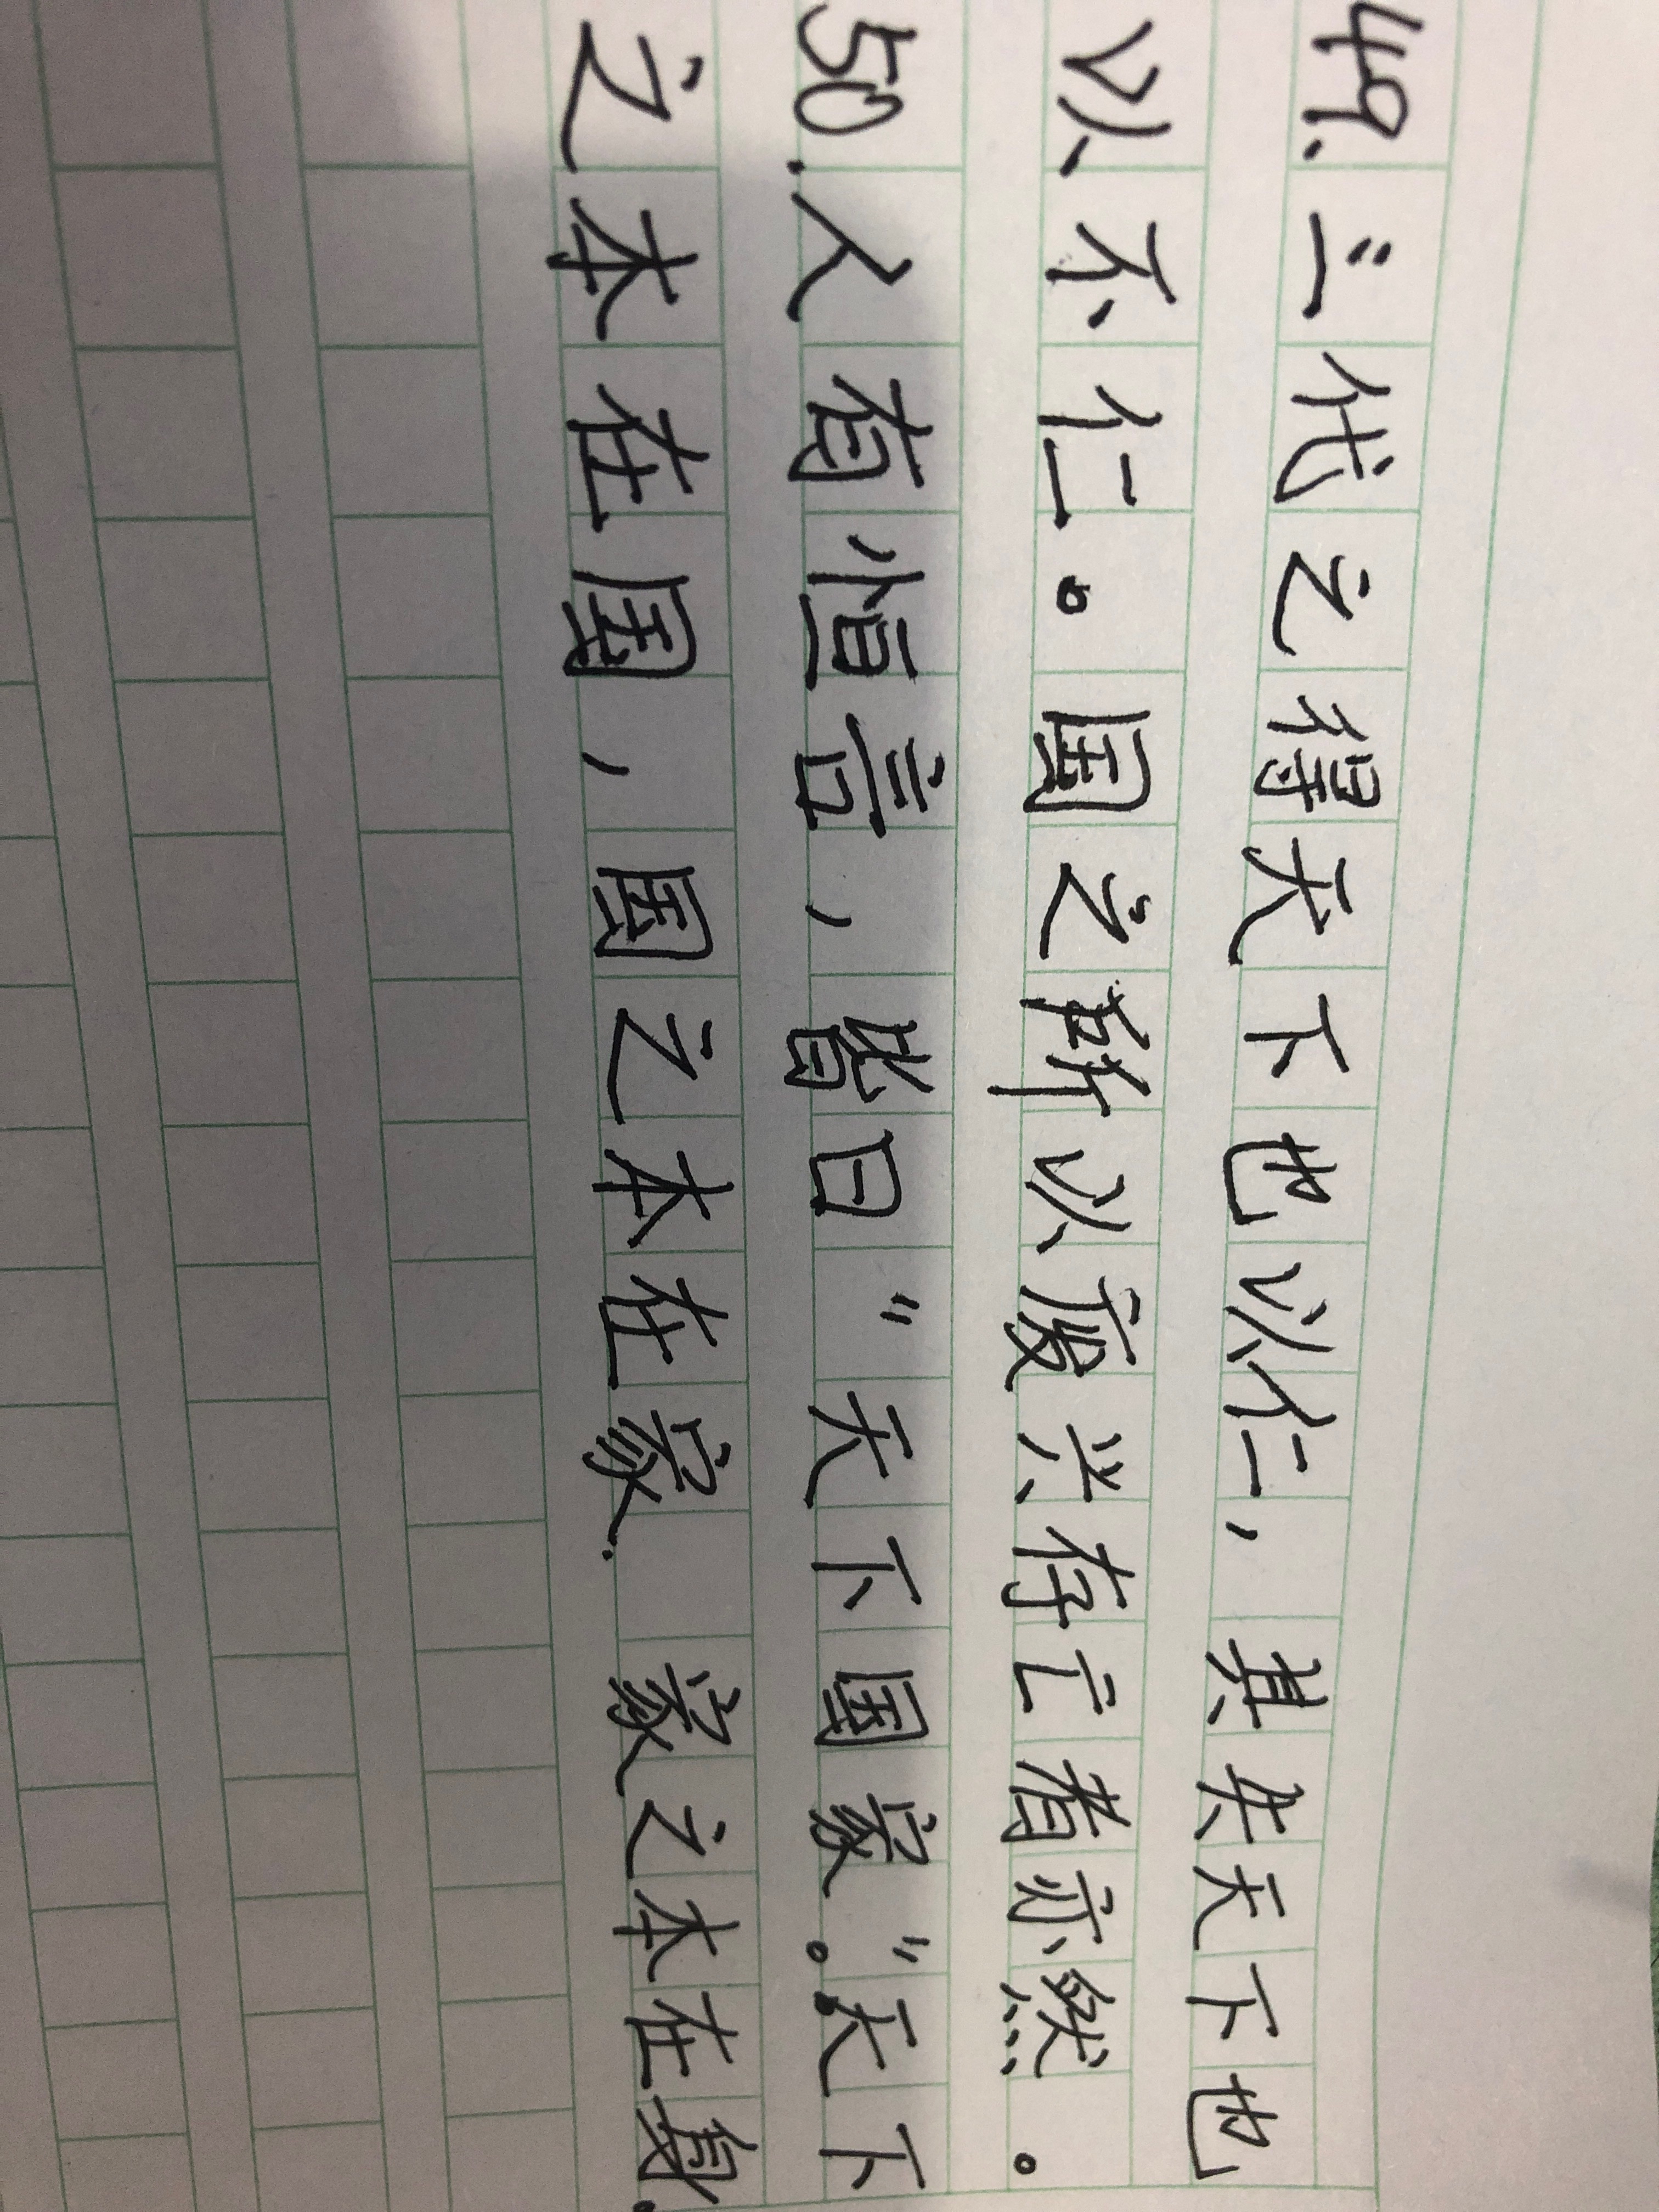 49.三代之得天下也以仁，其失天下也
以不仁。国之所以废兴存亡者亦然。
50.人有恒言，皆曰"天下国家"。天下
之本在国，国之本在家.家之本在身.